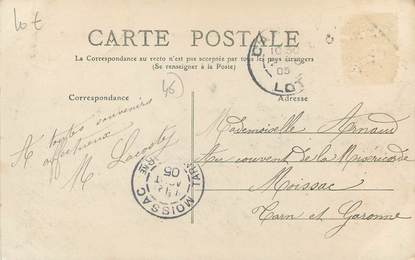 Lot
CARTE POSTALE
La Correspondance au recto n'est pas acceptée par tous les pays étrangers
(Se renseigner à la Poste)
46
Correspondance
Adresse
05
LOT
toutes souvenirs
affectueux
M. Lacoste
Mademoiselle Arnaud
Au couvent de la Miséricorde
Moissac
Tarn et Garonne
MOISSAC
05
TARN